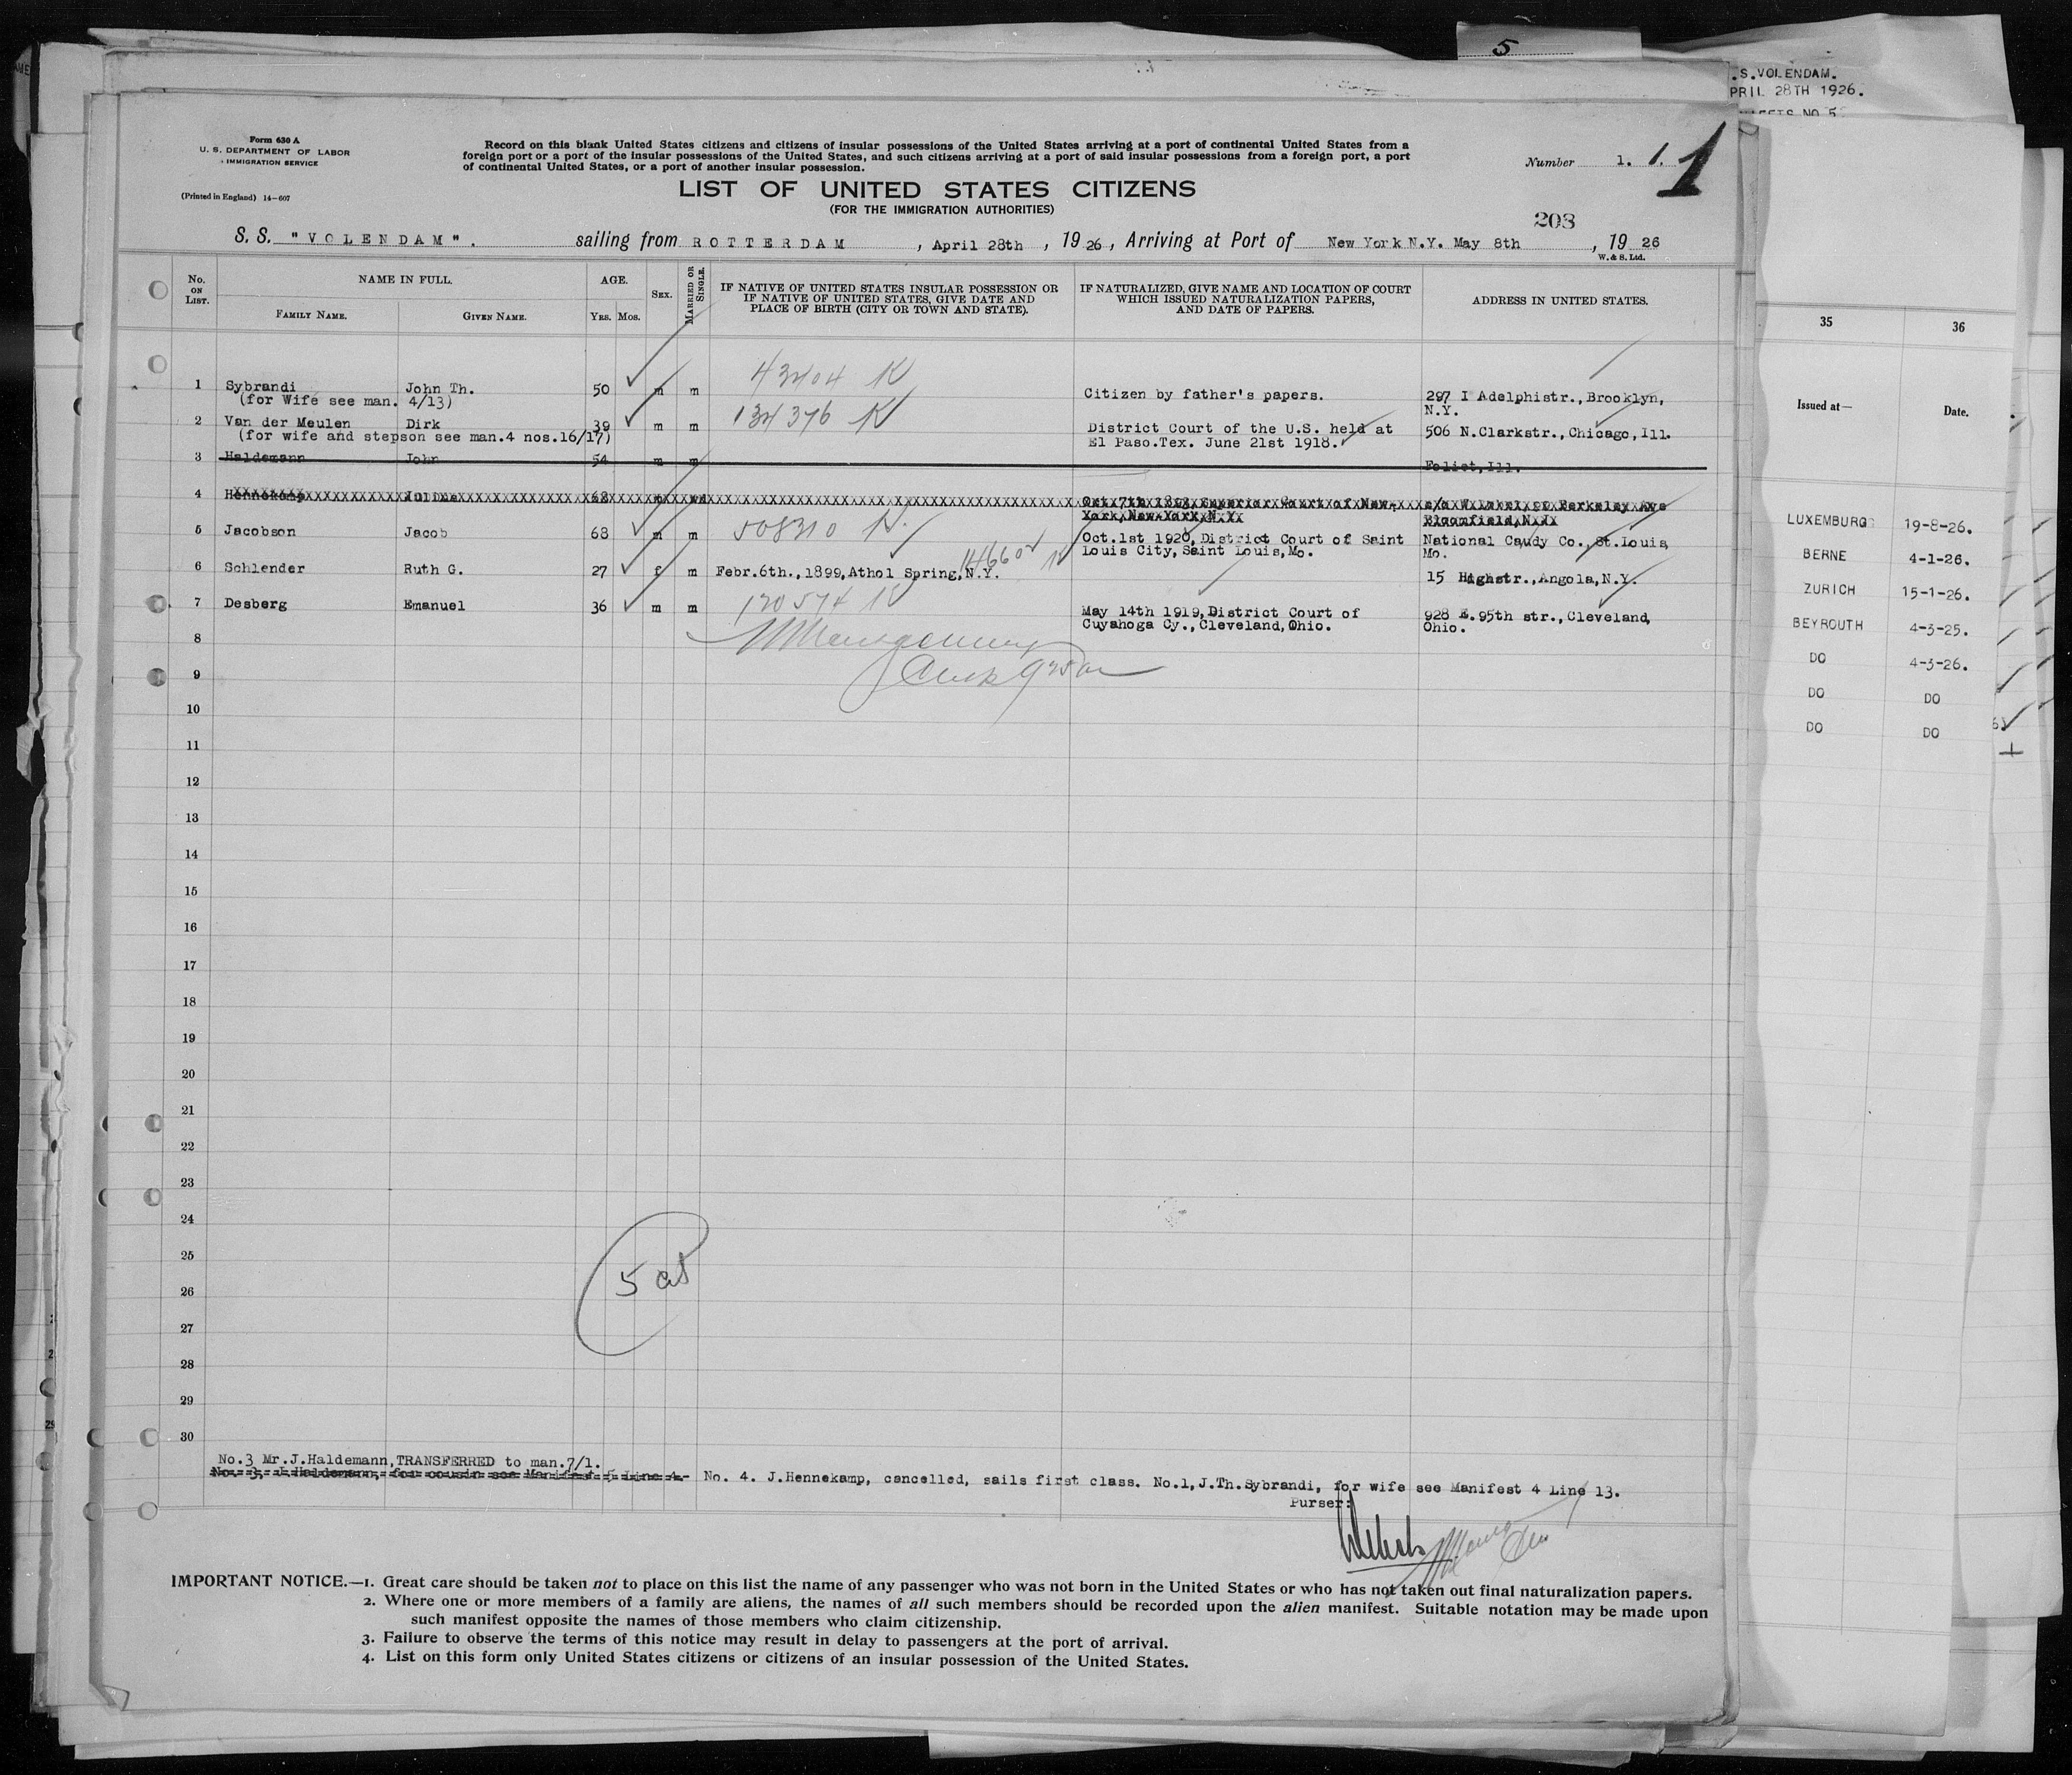 5
.S.VOLENDAM.
PRIL 28TH 1926.
Form 630 A
U. S. DEPARTMENT OF LABOR
IMMIGRATION SERVICE
(Printed in England) 14—607
Record on this blank United States citizens and citizens of insular possessions of the United States arriving at a port of continental United States from a
foreign port or a port of the insular possessions of the United States, and such citizens arriving at a port of said insular possessions from a foreign port, a port
of continental United States, or a port of another insular possession.
Number 1. 1. 1
LIST OF UNITED STATES CITIZENS
(FOR THE IMMIGRATION AUTHORITIES)
208
S. S. "VOLENDAM". sailing from ROTTERDAM, April 28th, 1926, Arriving at Port of New York N.Y. May 8th, 1926
W. & S. Ltd.
No. ON LIST.
NAME IN FULL.
FAMILY NAME.
GIVEN NAME.
AGE.
YRS. MOS.
SEX.
MARRIED OR SINGLE.
IF NATIVE OF UNITED STATES INSULAR POSSESSION OR
IF NATIVE OF UNITED STATES, GIVE DATE AND
PLACE OF BIRTH (CITY OR TOWN AND STATE).
IF NATURALIZED, GIVE NAME AND LOCATION OF COURT
WHICH ISSUED NATURALIZATION PAPERS,
AND DATE OF PAPERS.
ADDRESS IN UNITED STATES.
1 Sybrandi John Th. 50 m m 43404 Citizen by father's papers. 297 I Adelphistr., Brooklyn,
(for Wife see man. 4/13) N.Y.
2 Van der Meulen Dirk 39 m m 134376 District Court of the U.S. held at 506 N.Clarkstr., Chicago, Ill.
(for wife and stepson see man.4 nos.16/17) El Paso.Tex. June 21st 1918.
3 Haldemann John 54 m m Foliet, Ill.
4 Hennekamp 68 Oct 7th Superior Court of New- Berkeley Ave
York, New-York, N.Y. Bloomfield, N.J.
5 Jacobson Jacob 68 m m 508310 Oct.1st 1920, District Court of Saint National Candy Co., St.Louis,
Louis City, Saint Louis, Mo. Mo.
6 Schlender Ruth G. 27 f m Febr.6th., 1899, Athol Spring, N.Y. 15 Highstr., Angola, N.Y.
7 Desberg Emanuel 36 m m 120574 May 14th 1919, District Court of 928 E.95th str., Cleveland,
Cuyahoga Cy., Cleveland, Ohio. Ohio.
8
9
10
11
12
13
14
15
16
17
18
19
20
21
22
23
24
25
5
26
27
28
29
30
No.3 Mr.J.Haldemann, TRANSFERRED to man.7/1.
No. 3, J.Haldemann, for cousin see Manifest 5 Line 4.- No. 4. J.Hennekamp, cancelled, sails first class. No.1, J.Th.Sybrandi, for wife see Manifest 4 Line 13.
Purser:
IMPORTANT NOTICE.—1. Great care should be taken not to place on this list the name of any passenger who was not born in the United States or who has not taken out final naturalization papers.
2. Where one or more members of a family are aliens, the names of all such members should be recorded upon the alien manifest. Suitable notation may be made upon
such manifest opposite the names of those members who claim citizenship.
3. Failure to observe the terms of this notice may result in delay to passengers at the port of arrival.
4. List on this form only United States citizens or citizens of an insular possession of the United States.
35 36
Issued at— Date.
LUXEMBURG 19-8-26.
BERNE 4-1-26.
ZURICH 15-1-26.
BEYROUTH 4-3-25.
DO 4-3-26.
DO DO
DO DO